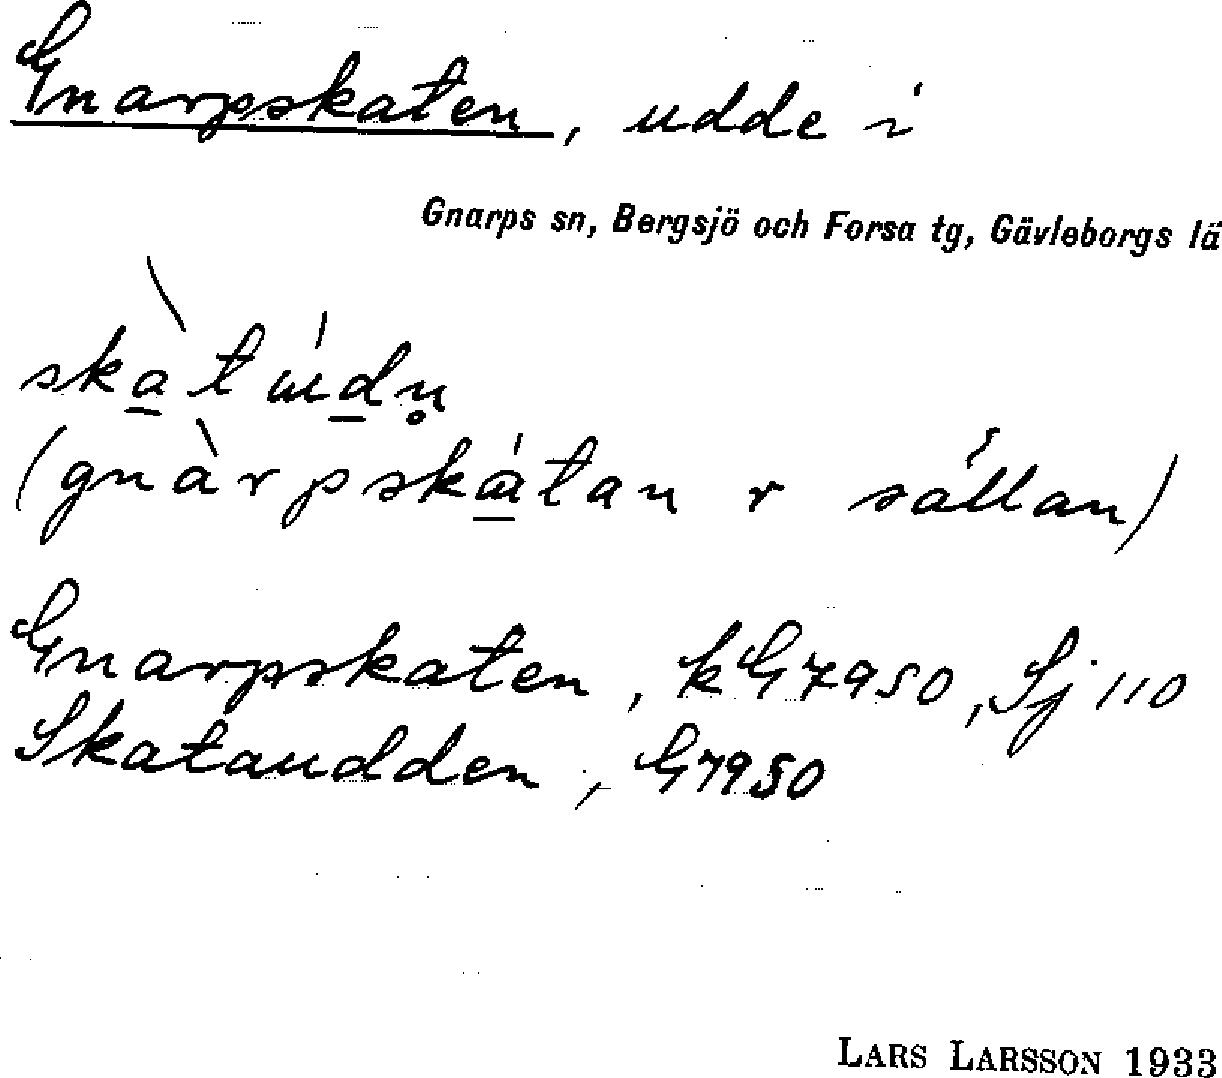 Gnarpskaten, udde i
Gnarps sn, Bergsjö och Forsa tg, Gävleborgs lä
(gnàrpskátan r sällan)
Gnarpskaten, kG7950, Sj 110
Skataudden, G7950
LARS LARSSON 1933